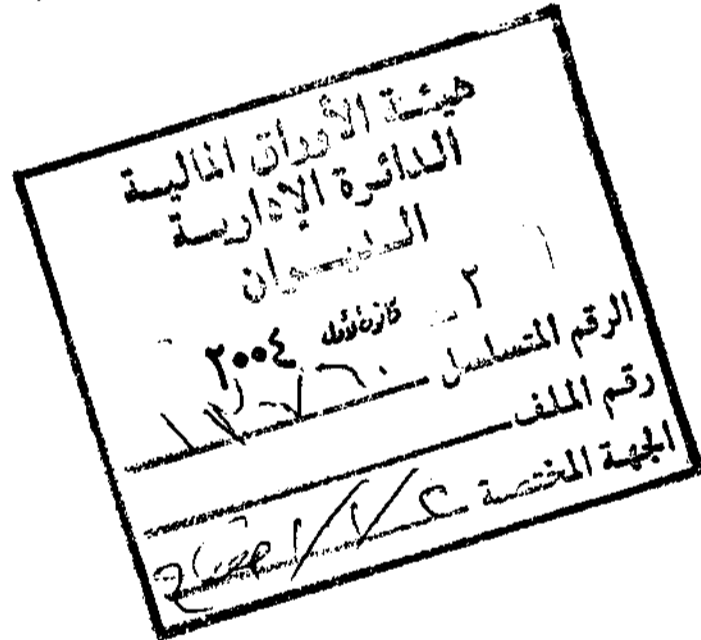 هيئة الأوراق المالية
الدائرة الإدارية
الديوان
٢ كانون أول ٢٠٠٤
الرقم المتسلسل
رقم الملف
الجهة المختصة